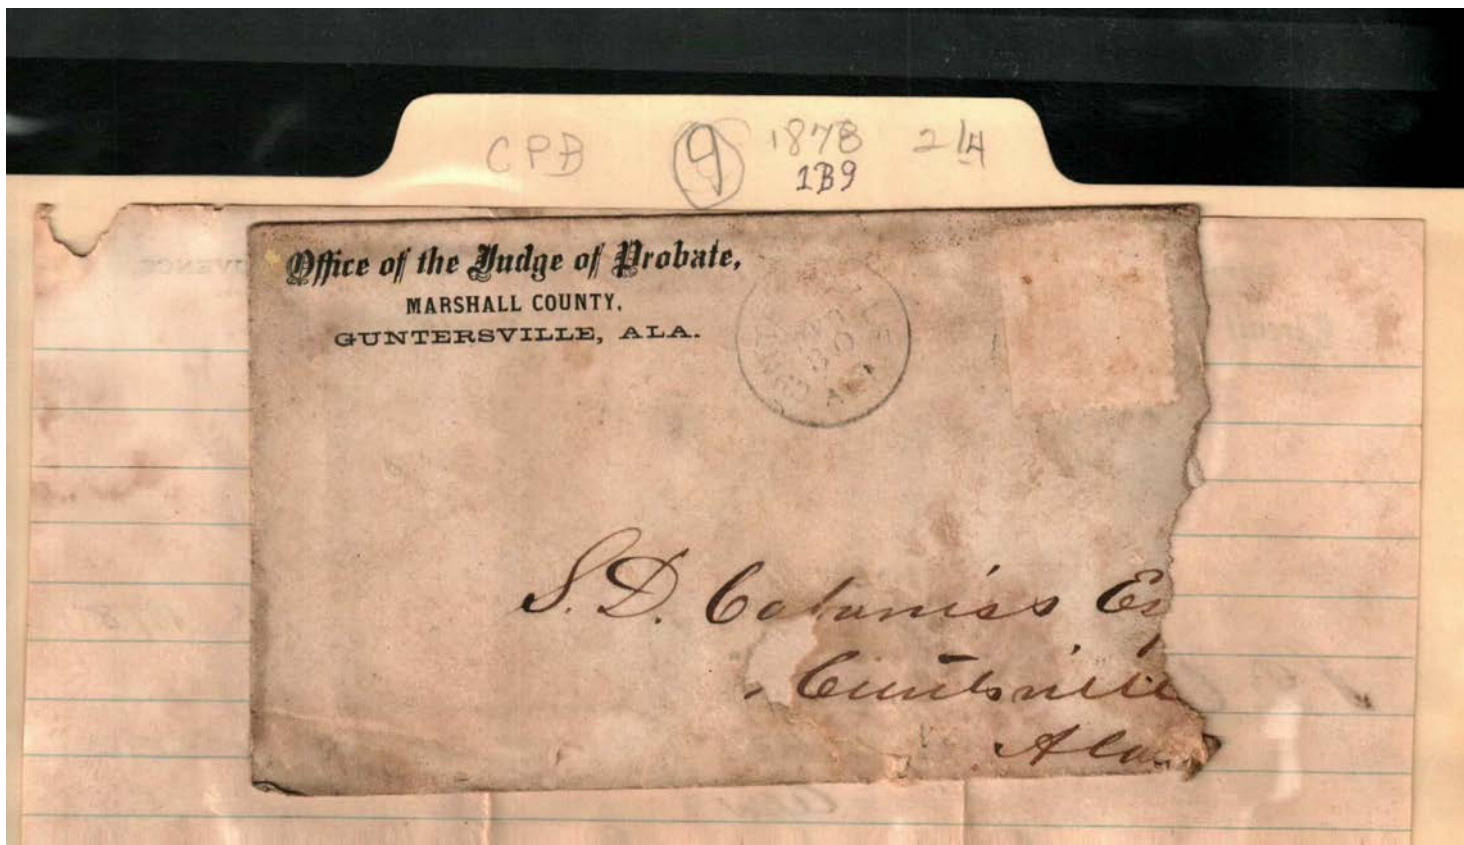 CPB 9 1878 2/4
1B9
Office of the Judge of Probate,
MARSHALL COUNTY,
GUNTERSVILLE, ALA.
S. D. Cabaniss Es
Huntsville
Ala